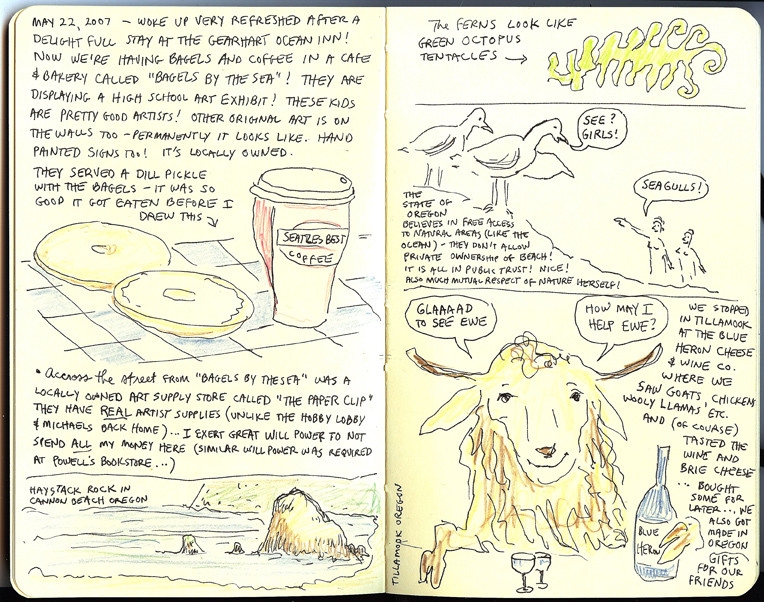 MAY 22, 2007 - WOKE UP VERY REFRESHED AFTER A
DELIGHT FULL STAY AT THE GEARHART OCEAN INN!
NOW WE'RE HAVING BAGELS AND COFFEE IN A CAFE
& BAKERY CALLED "BAGELS BY THE SEA"! THEY ARE
DISPLAYING A HIGH SCHOOL ART EXHIBIT! THESE KIDS
ARE PRETTY GOOD ARTISTS! OTHER ORIGINAL ART IS ON
THE WALLS TOO - PERMANENTLY IT LOOKS LIKE. HAND
PAINTED SIGNS TOO! IT'S LOCALLY OWNED.
THEY SERVED A DILL PICKLE
WITH THE BAGELS - IT WAS SO
GOOD IT GOT EATEN BEFORE I
DREW THIS
SEATTLES BEST
COFFEE
• ACROSS THE STREET FROM "BAGELS BY THE SEA" WAS A
LOCALLY OWNED ART SUPPLY STORE CALLED "THE PAPER CLIP"
THEY HAVE REAL ARTIST SUPPLIES (UNLIKE THE HOBBY LOBBY
& MICHAELS BACK HOME)... I EXERT GREAT WILL POWER TO NOT
SPEND ALL MY MONEY HERE (SIMILAR WILL POWER WAS REQUIRED
AT POWELL'S BOOKSTORE...)
HAYSTACK ROCK IN
CANNON BEACH OREGON
THE FERNS LOOK LIKE
GREEN OCTOPUS
TENTACLES →
SEE?
GIRLS!
SEAGULLS!
THE
STATE OF
OREGON
BELIEVES IN FREE ACCESS
TO NATURAL AREAS (LIKE THE
OCEAN) - THEY DON'T ALLOW
PRIVATE OWNERSHIP OF BEACH!
IT IS ALL IN PUBLIC TRUST! NICE!
ALSO MUCH MUTUAL RESPECT OF NATURE HERSELF!
GLAAAAD
TO SEE EWE
HOW MAY I
HELP EWE?
WE STOPPED
IN TILLAMOOK
AT THE BLUE
HERON CHEESE
& WINE CO.
WHERE WE
SAW GOATS, CHICKENS
WOOLY LLAMAS, ETC.
AND (OF COURSE)
TASTED THE
WINE AND
BRIE CHEESE
... BOUGHT
SOME FOR
LATER... WE
ALSO GOT
MADE IN
OREGON
GIFTS
FOR OUR
FRIENDS
BLUE
HERON
TILLAMOOK OREGON